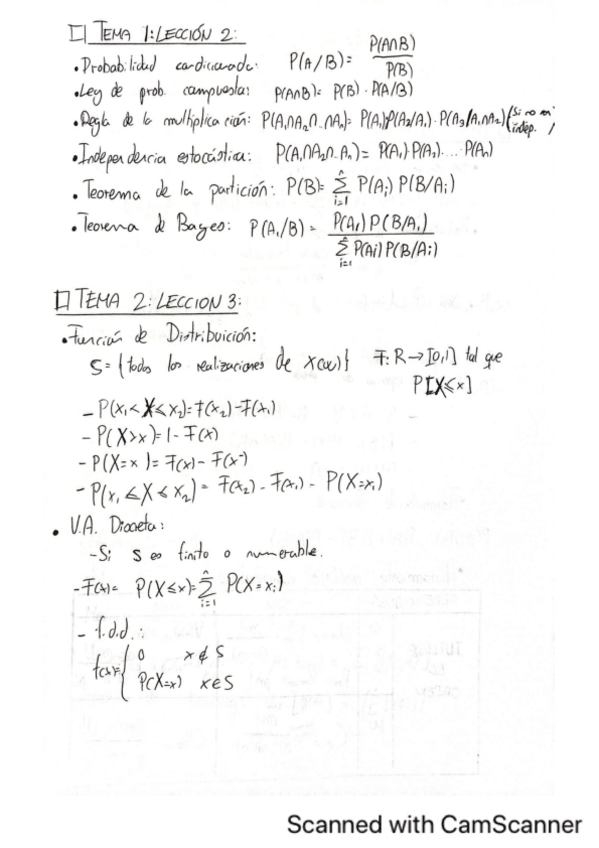 TEMA 1: LECCIÓN 2:
• Probabilidad condicionada: P(A/B) = P(A∩B) / P(B)
• Ley de prob. compuesta: P(A∩B) = P(B) · P(A/B)
• Regla de la multiplicación: P(A₁∩A₂∩...∩Aₙ) = P(A₁)P(A₂/A₁)·P(A₃/A₁∩A₂) (Si no indep.
• Independencia estocástica: P(A₁∩A₂∩...Aₙ) = P(A₁)·P(A₂)....P(Aₙ)
• Teorema de la partición: P(B) = ∑ⁿᵢ₌₁ P(Aᵢ) P(B/Aᵢ)
• Teorema de Bayes: P(A₁/B) = P(A₁) P(B/A₁) / ∑ⁿᵢ₌₁ P(Aᵢ) P(B/Aᵢ)
TEMA 2: LECCION 3:
• Función de Distribuición:
S = {todas las realizaciones de X(ω)} F: R → [0,1] tal que
P[X≤x]
- P(x₁ < X ≤ x₂) = F(x₂) - F(x₁)
- P(X > x) = 1 - F(x)
- P(X = x) = F(x) - F(x⁻)
- P(x₁ ≤ X ≤ x₂) = F(x₂) - F(x₁) - P(X=x₁)
• V.A. Discreta:
- Si S es finito o numerable.
- F(x) = P(X≤x) = ∑ⁿᵢ₌₁ P(X=xᵢ)
- f.d.d.:
f(x) = { 0 x ∉ S
P(X=x) x ∈ S
Scanned with CamScanner